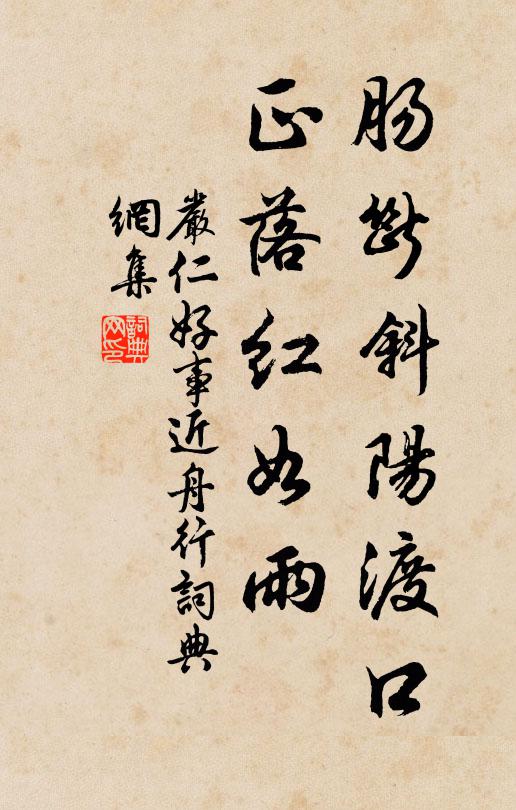 腸斷斜陽渡口
正落紅如雨
嚴仁好事近舟行詞典
網集
詞典網印